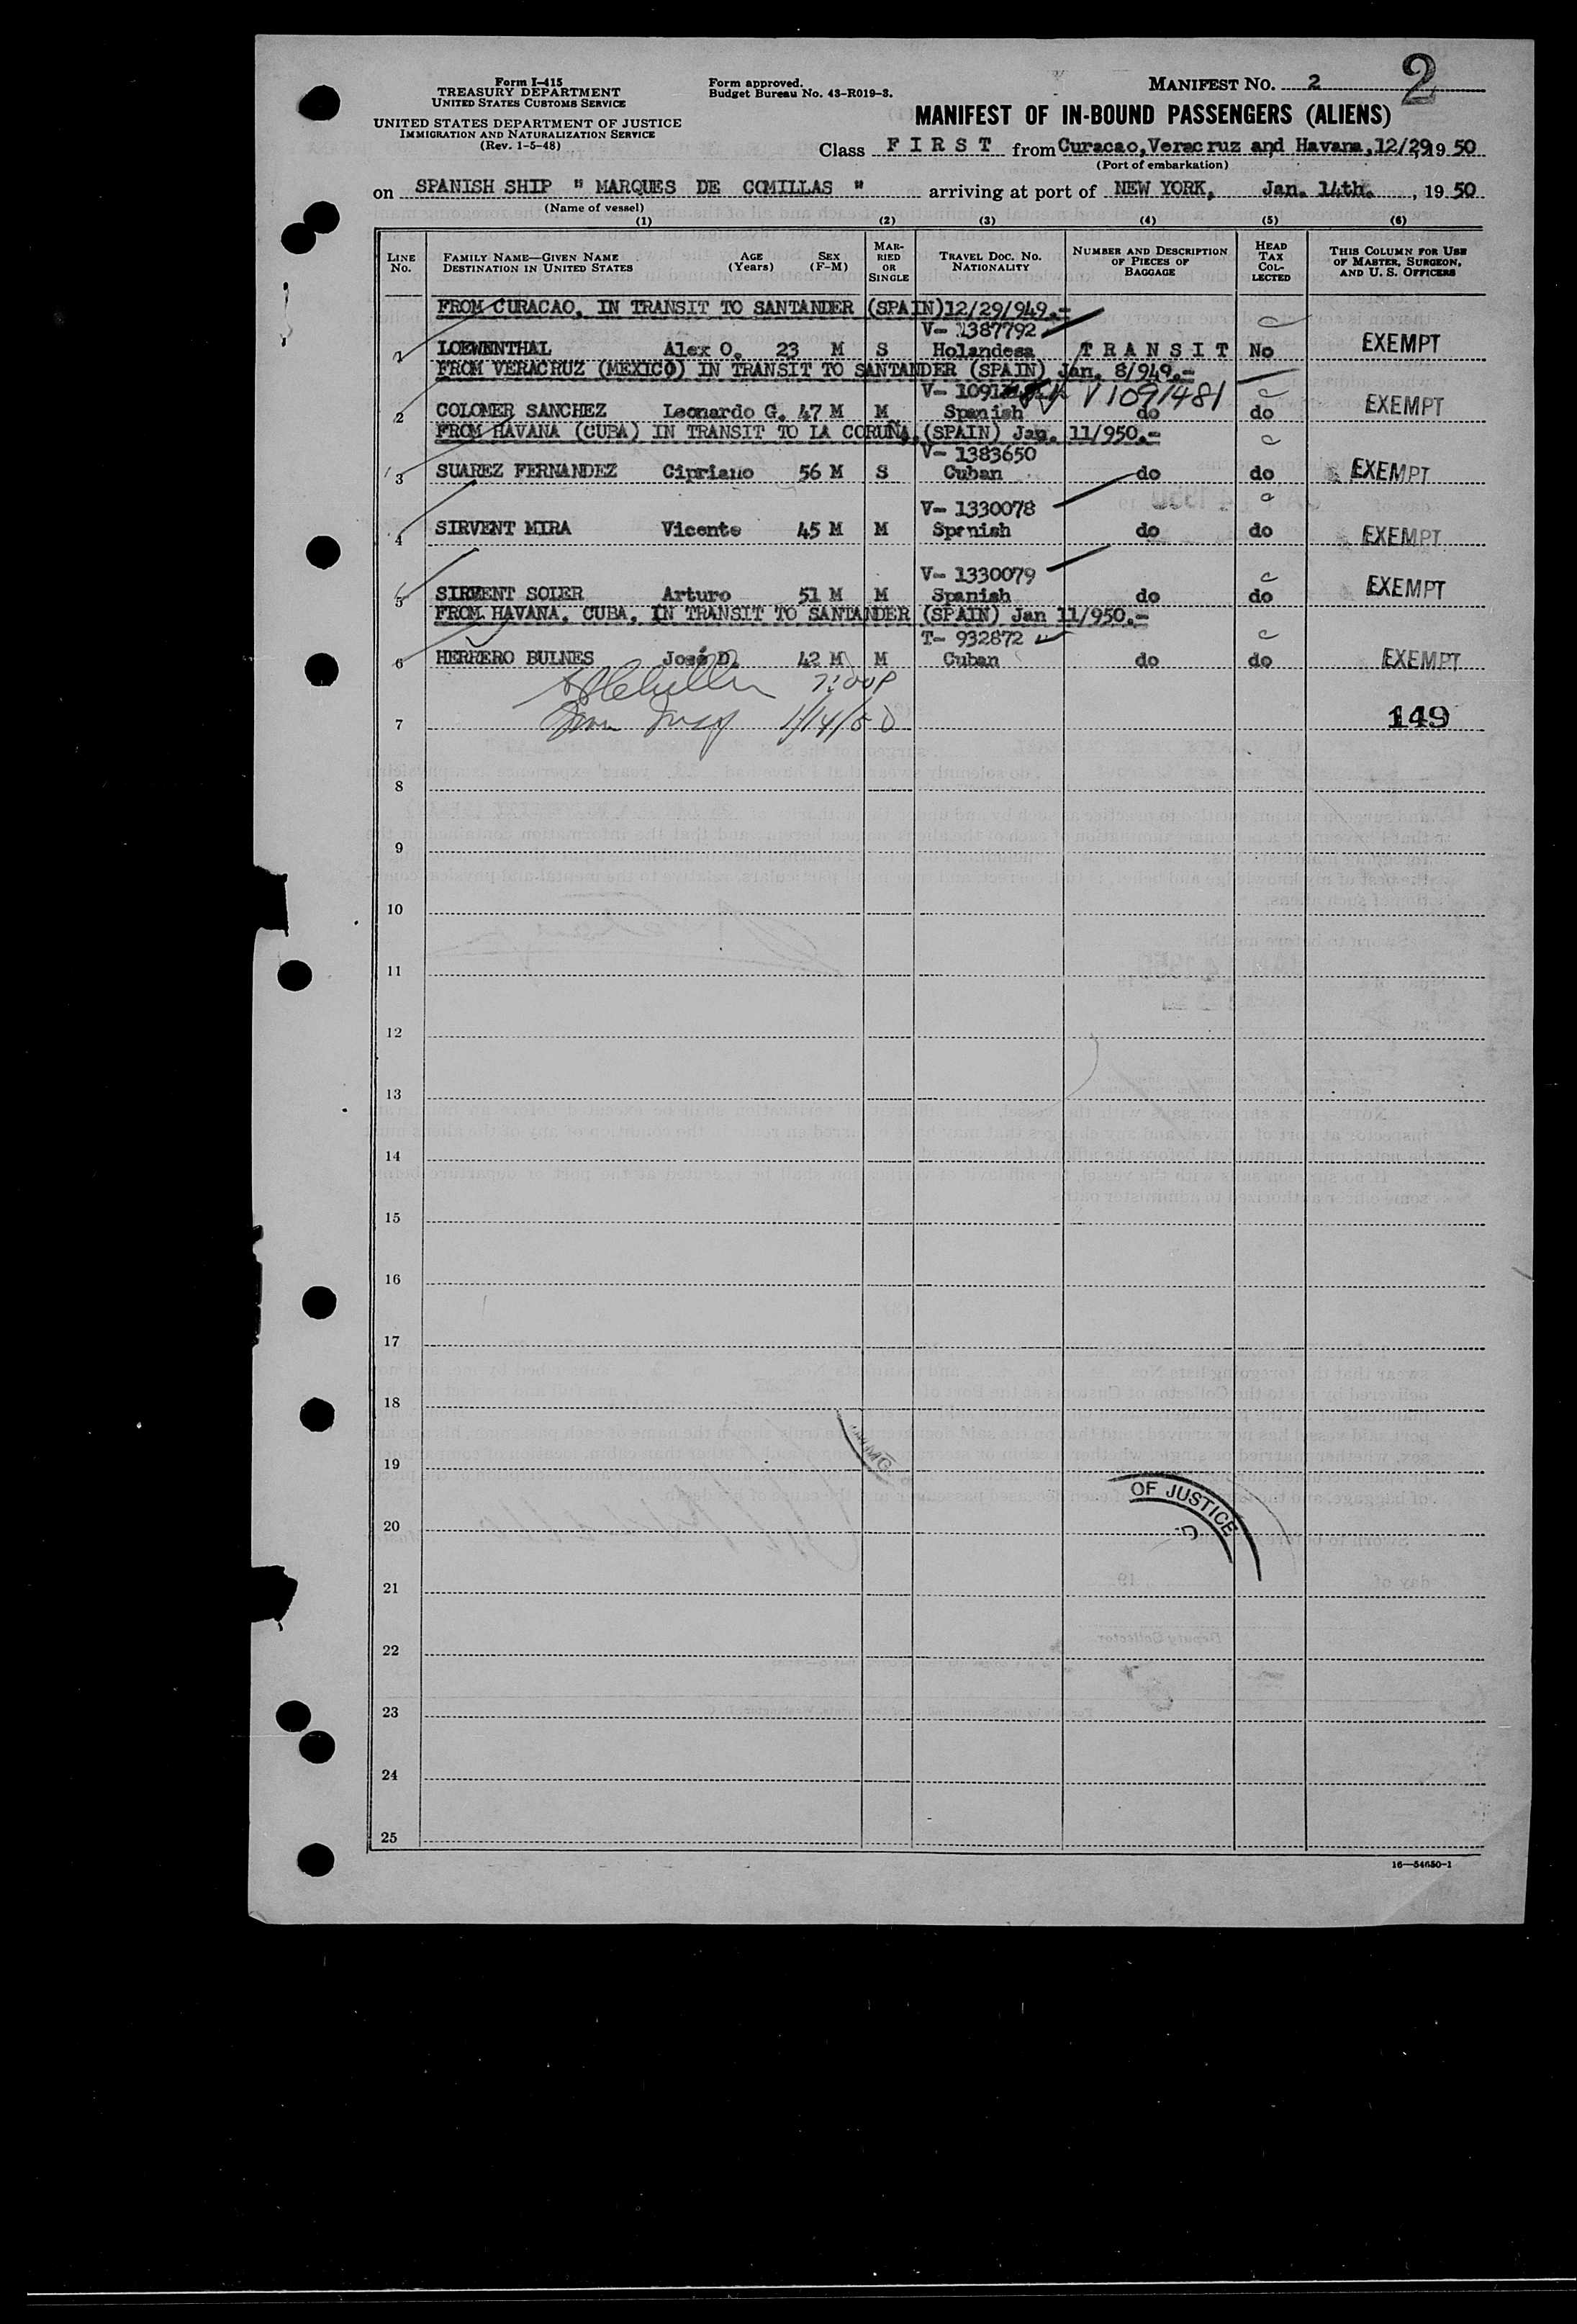 Form I-415
TREASURY DEPARTMENT
UNITED STATES CUSTOMS SERVICE
UNITED STATES DEPARTMENT OF JUSTICE
IMMIGRATION AND NATURALIZATION SERVICE
(Rev. 1-5-48)
Form approved.
Budget Bureau No. 43-R019-3.
MANIFEST NO. 2
2
MANIFEST OF IN-BOUND PASSENGERS (ALIENS)
Class F I R S T from Curacao, Veracruz and Havana, 12/29 19 50
(Port of embarkation)
on SPANISH SHIP " MARQUES DE COMILLAS " arriving at port of NEW YORK, Jan. 14th. , 19 50
(Name of vessel)
(1) (2) (3) (4) (5) (6)
LINE NO. FAMILY NAME—GIVEN NAME DESTINATION IN UNITED STATES AGE (Years) SEX (F-M) MARRIED OR SINGLE TRAVEL DOC. NO. NATIONALITY NUMBER AND DESCRIPTION OF PIECES OF BAGGAGE HEAD TAX COLLECTED THIS COLUMN FOR USE OF MASTER, SURGEON, AND U. S. OFFICERS
FROM CURACAO, IN TRANSIT TO SANTANDER (SPAIN) 12/29/949.-
V- 1387792
1 LOEWENTHAL Alex O. 23 M S Holandesa T R A N S I T No EXEMPT
FROM VERACRUZ (MEXICO) IN TRANSIT TO SANTANDER (SPAIN) Jan. 8/949.-
V- 1091 V1091481
2 COLOMER SANCHEZ Leonardo G. 47 M M Spanish do do EXEMPT
FROM HAVANA (CUBA) IN TRANSIT TO LA CORUÑA, (SPAIN) Jan. 11/950.-
V- 1383650
3 SUAREZ FERNANDEZ Cipriano 56 M S Cuban do do EXEMPT
V- 1330078
4 SIRVENT MIRA Vicente 45 M M Spanish do do EXEMPT
V- 1330079
5 SIRVENT SOLER Arturo 51 M M Spanish do do EXEMPT
FROM HAVANA, CUBA, IN TRANSIT TO SANTANDER (SPAIN) Jan 11/950.-
T- 932872
6 HERRERO BULNES José D. 42 M M Cuban do do EXEMPT
7:00P
7 1/14/50 149
8
9
10
11
12
13
14
15
16
17
18
19
OF JUSTICE
20
21
22
23
24
25
16—54650-1